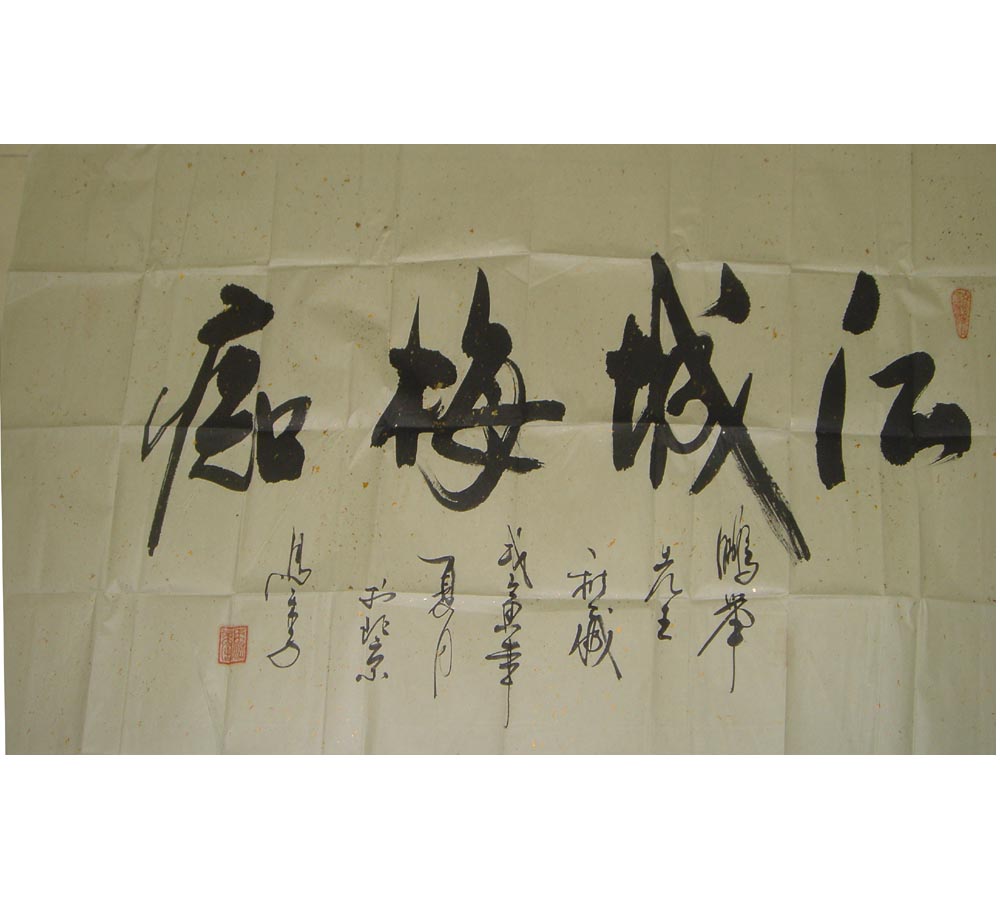 江城梅痴
鹏举
先生
补仪
戊寅年
夏月
于北京